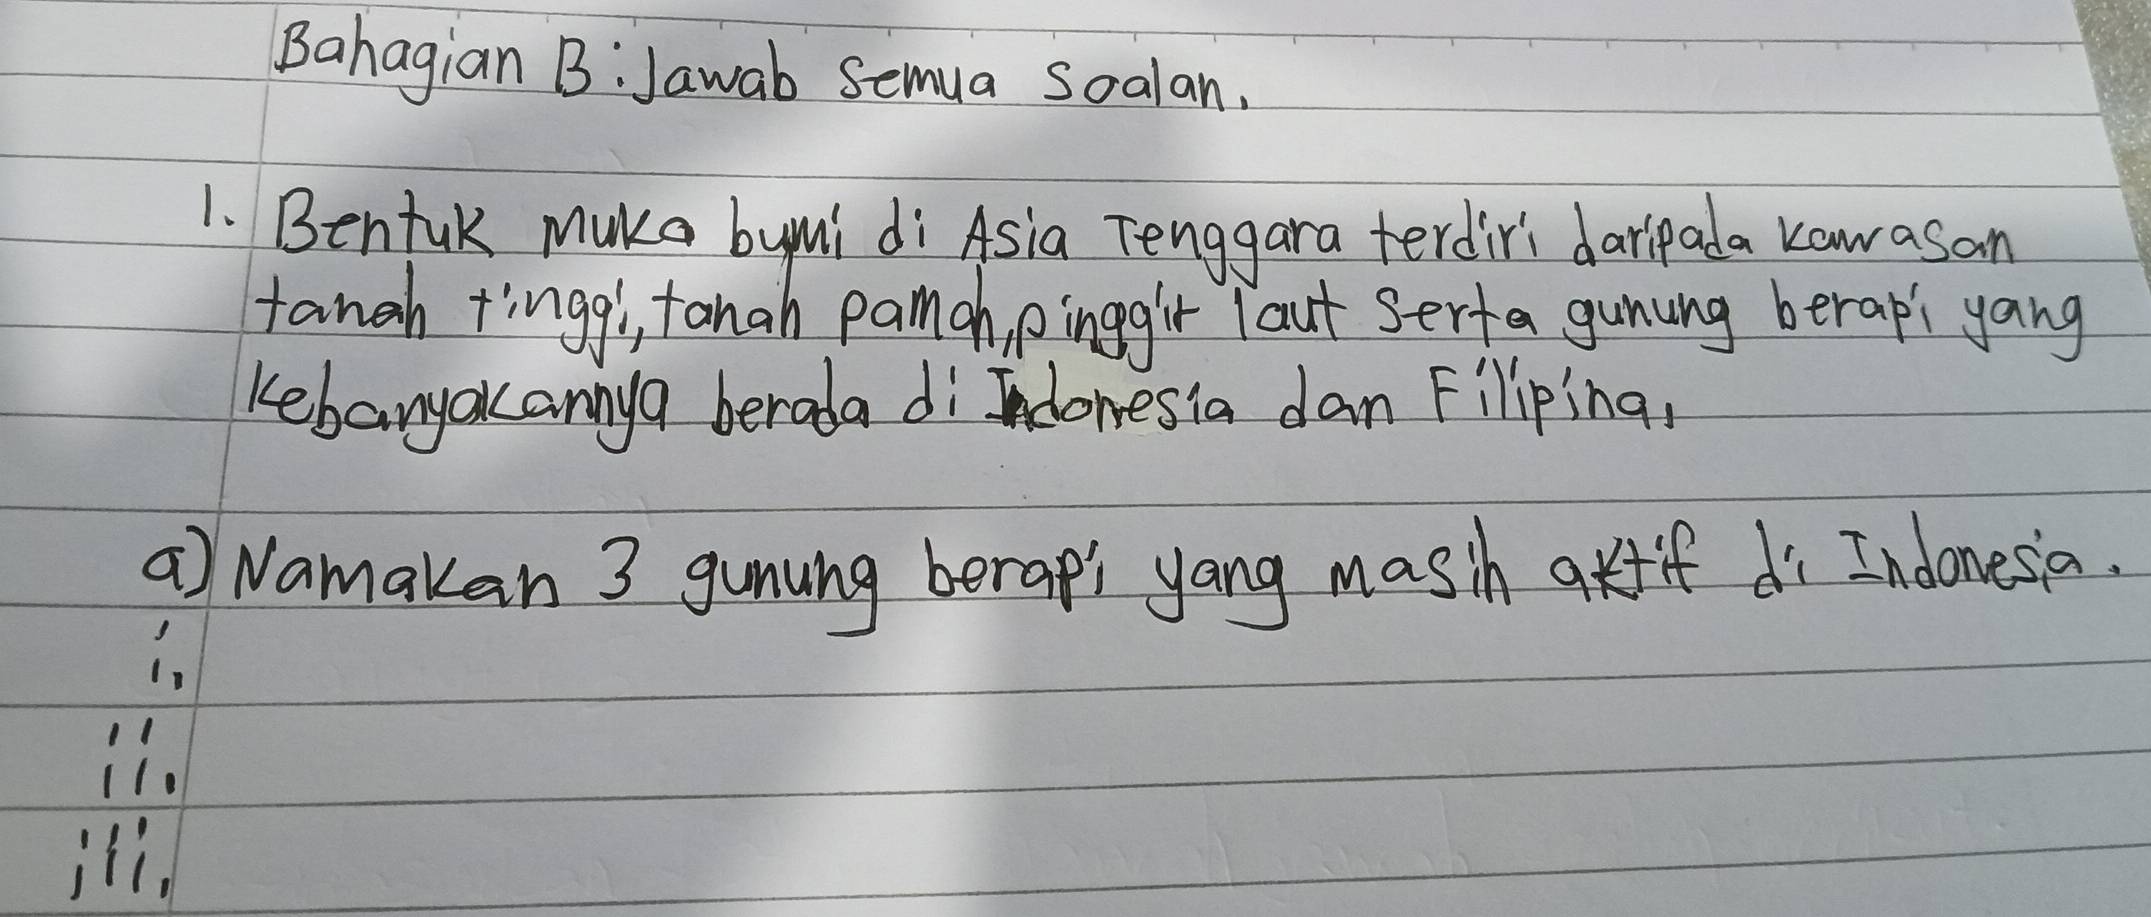 Bahagian B: Jawab semua soalan.
1. Bentuk muka bumi di Asia Tenggara terdiri daripada kawasan
tanah tinggi, tanah pamah, pinggir laut serta gunung berapi yang
kebanyakannya berada di Indonesia dan Filipina.
a) Namakan 3 gunung berapi yang masih aktif di Indonesia.
i.
ii.
iii.